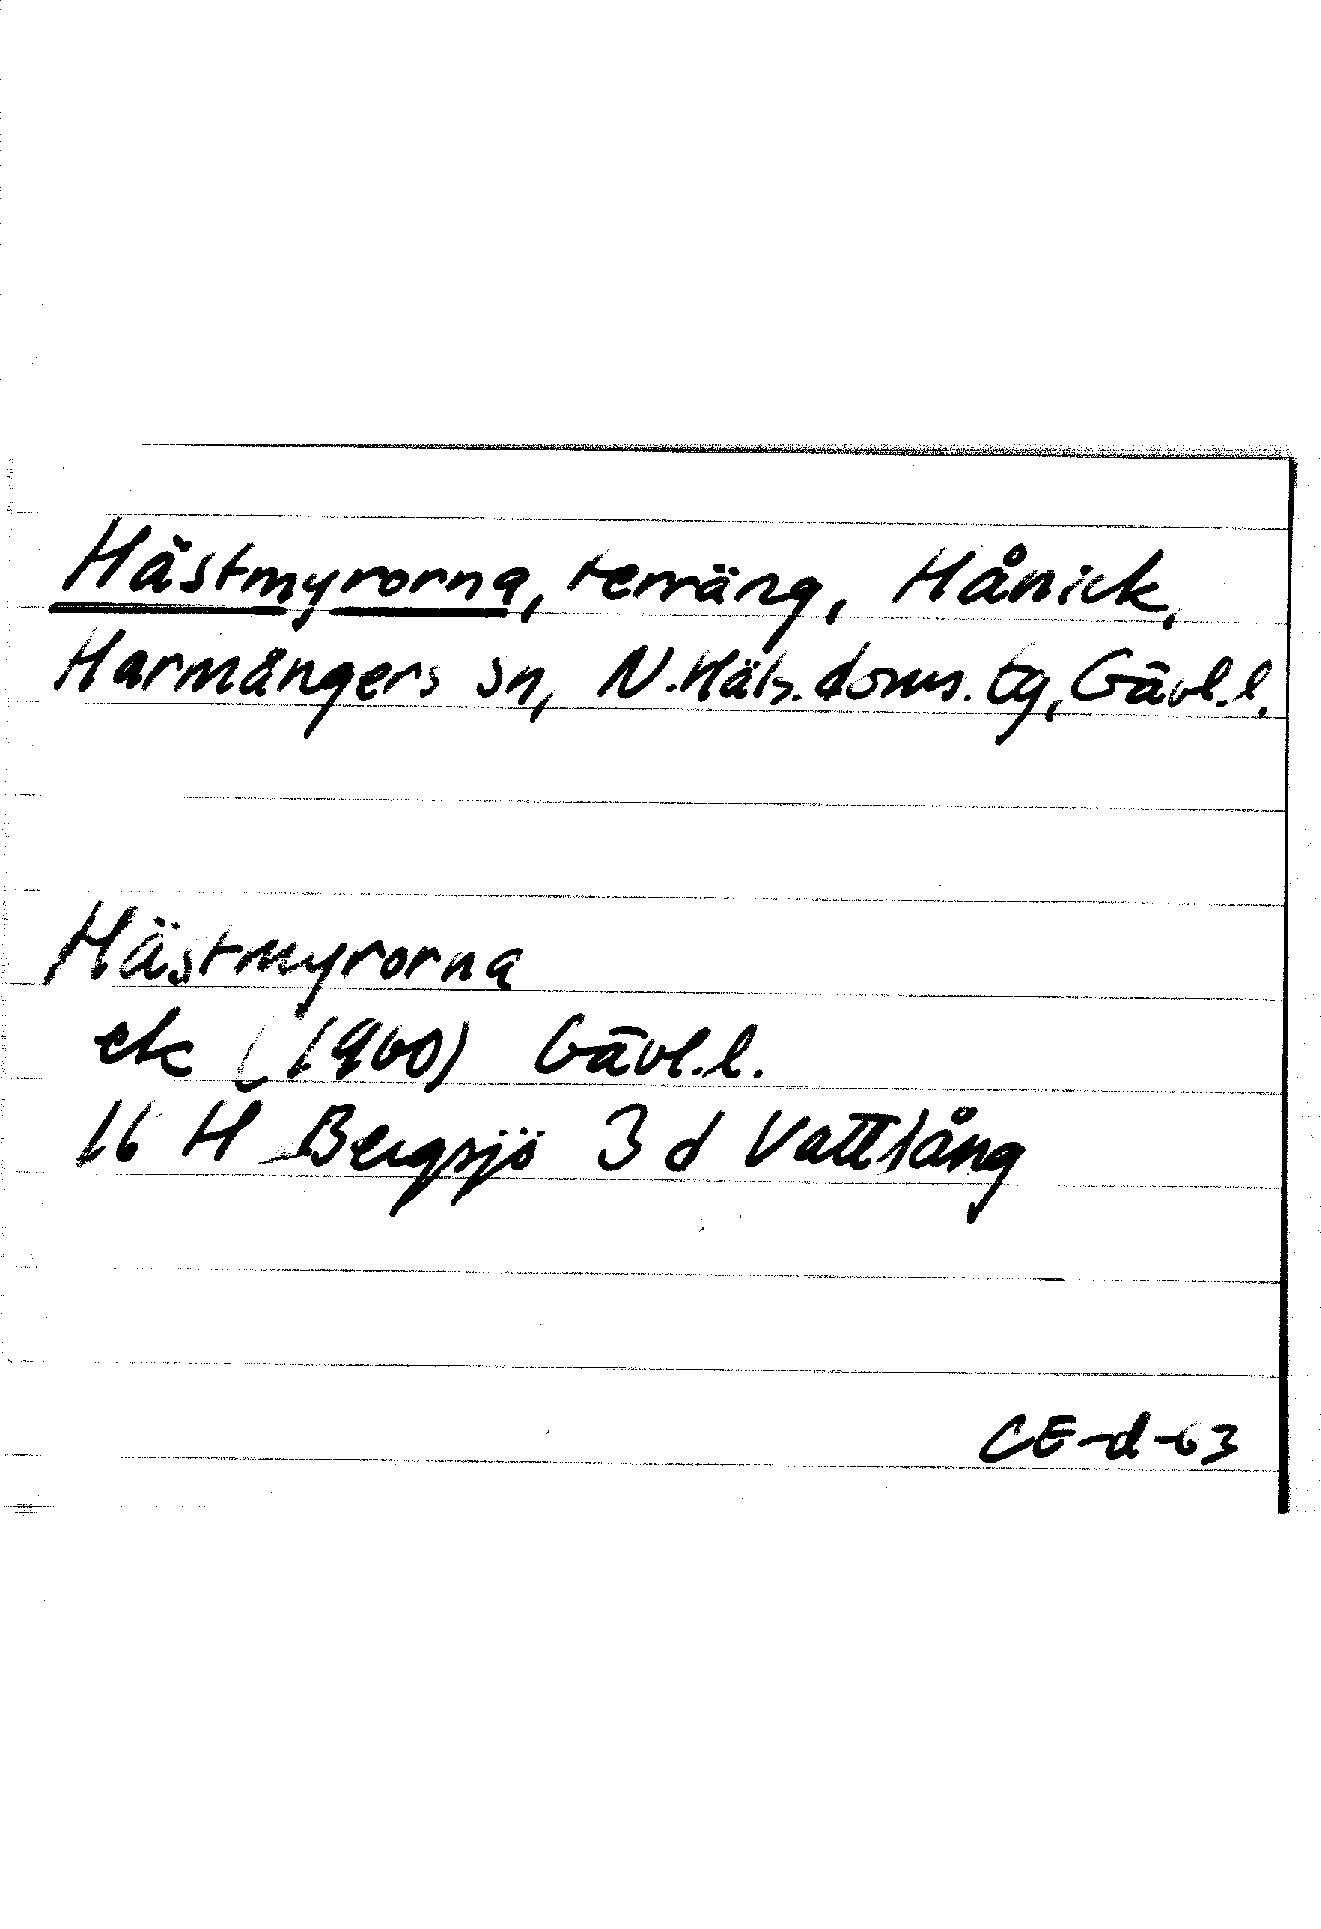 Hästmyrorna, terräng, Hånick,
Harmångers sn, N.Häls.doms.tg, Gävl.l.
Hästmyrorna
ek (1960) Gävl.l.
16 H Bergsjö 3 d Vattlång
CE-d-63